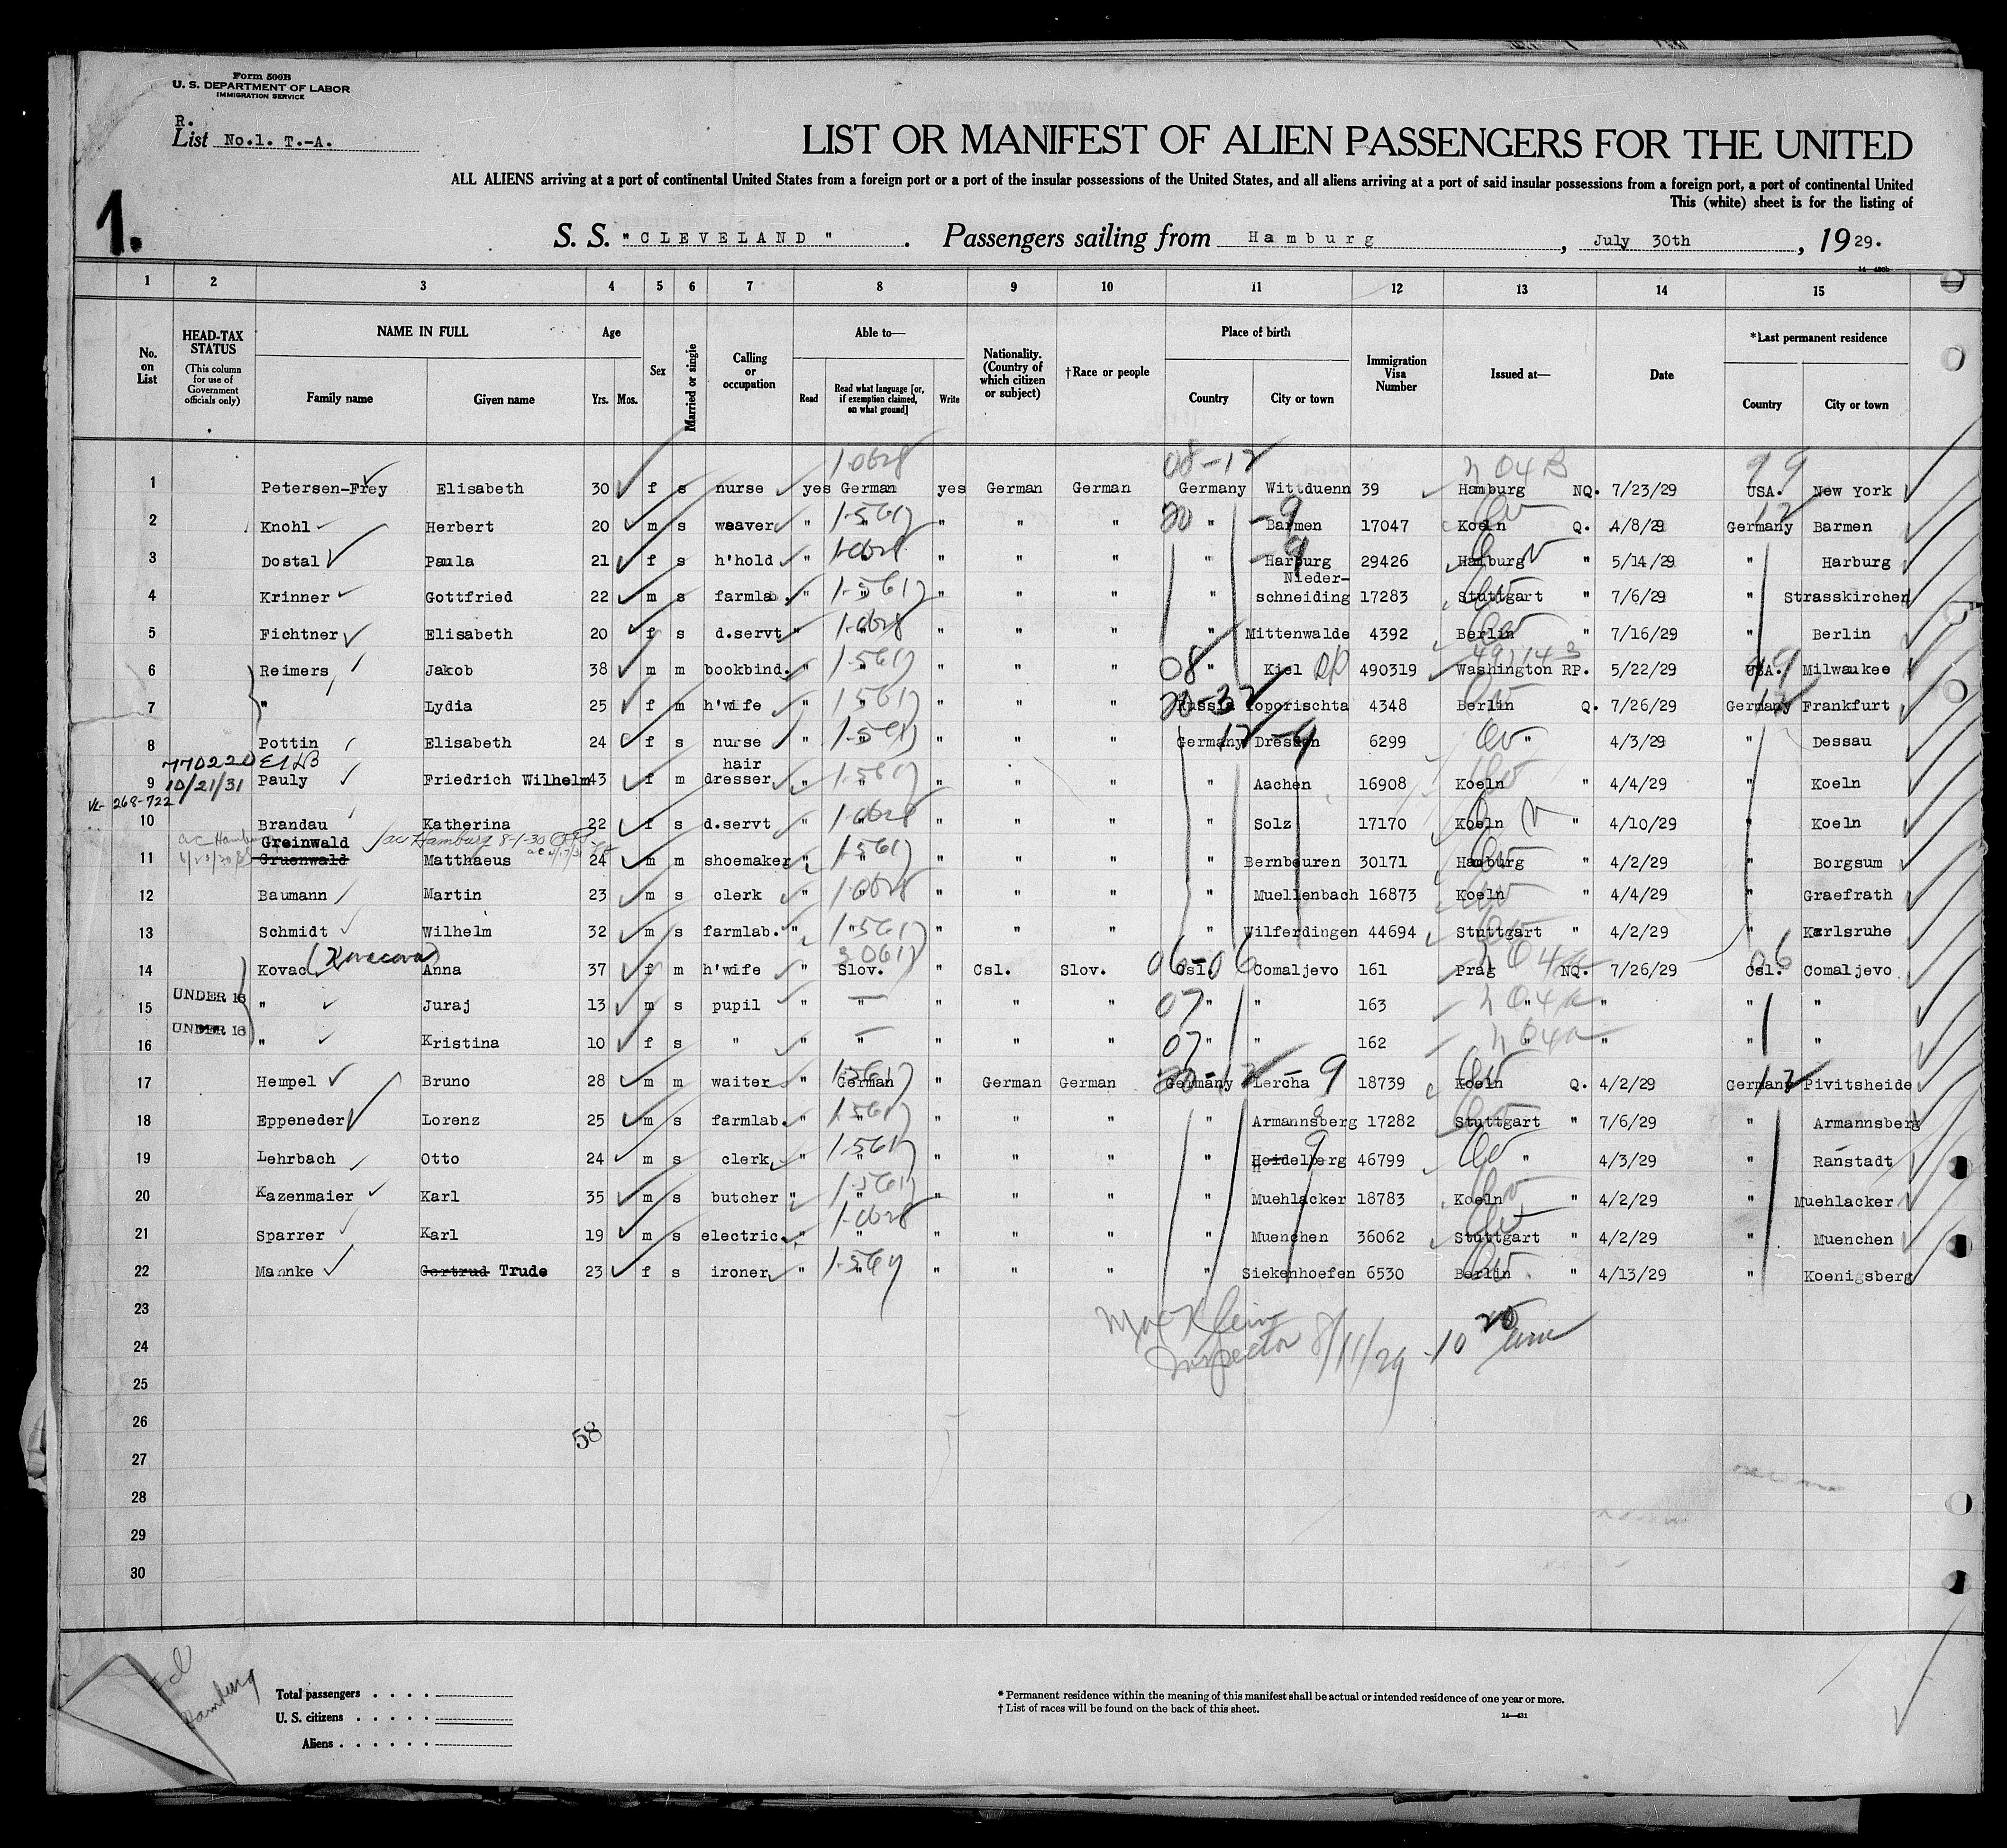 Form 500B
U. S. DEPARTMENT OF LABOR
IMMIGRATION SERVICE
R.
List No.1. T.-A.
LIST OR MANIFEST OF ALIEN PASSENGERS FOR THE UNITED
ALL ALIENS arriving at a port of continental United States from a foreign port or a port of the insular possessions of the United States, and all aliens arriving at a port of said insular possessions from a foreign port, a port of continental United
This (white) sheet is for the listing of
1.
S. S. "CLEVELAND" . Passengers sailing from Hamburg , July 30th , 1929.
1 2 3 4 5 6 7 8 9 10 11 12 13 14 15
No. on List
HEAD-TAX STATUS (This column for use of Government officials only)
NAME IN FULL Family name Given name
Age Yrs. Mos.
Sex
Married or single
Calling or occupation
Able to— Read Read what language [or, if exemption claimed, on what ground] Write
Nationality. (Country of which citizen or subject)
†Race or people
Place of birth Country City or town
Immigration Visa Number
Issued at—
Date
*Last permanent residence Country City or town
1-0628 08-12 99
1 Petersen-Frey Elisabeth 30 f s nurse yes German yes German German Germany Wittduenn 39 Hamburg NQ. 7/23/29 USA. New York
2 Knohl Herbert 20 m s weaver " " " " " 20 " -9 Barmen 17047 Koeln Q. 4/8/29 Germany Barmen
3 Dostal Paula 21 f s h'hold " " " " " " -9 Harburg 29426 Hamburg " 5/14/29 " Harburg
4 Krinner Gottfried 22 m s farmla . " " " " " " Nieder-
schneiding 17283 Stuttgart " 7/6/29 " Strasskirchen
5 Fichtner Elisabeth 20 f s d.servt " " " " " " Mittenwalde 4392 Berlin " 7/16/29 " Berlin
6 Reimers Jakob 38 m m bookbind. " " " " " 08 " Kiel 490319 Washington RP. 5/22/29 USA. Milwaukee
7 " Lydia 25 f m h'wife " " " " " Russia Toporischta 4348 Berlin Q. 7/26/29 Germany Frankfurt
8 Pottin Elisabeth 24 f s nurse " " " " " Germany Dresden 6299 " 4/3/29 " Dessau
770220
hair
9 10/21/31 Pauly Friedrich Wilhelm 43 f m dresser " " " " " " Aachen 16908 Koeln " 4/4/29 " Koeln
VL- 268-722
10 Brandau Katherina 22 f s d.servt " " " " " " Solz 17170 Koeln " 4/10/29 " Koeln
Greinwald ac Hamburg 8-1-30
11 Gruenwald Matthaeus 24 m m shoemaker " " " " " " Bernbeuren 30171 Hamburg " 4/2/29 " Borgsum
12 Baumann Martin 23 m s clerk " " " " " " Muellenbach 16873 Koeln " 4/4/29 " Graefrath
13 Schmidt Wilhelm 32 m s farmlab. " " " " " " Wilferdingen 44694 Stuttgart " 4/2/29 " Karlsruhe
(Kovacova)
14 Kovac Anna 37 f m h'wife " Slov. " Csl. Slov. Csl. Comaljevo 161 Prag NQ. 7/26/29 Csl. Comaljevo
UNDER 16
15 " Juraj 13 m s pupil " " " " " 07 " " 163 " " " "
UNDER 16
16 " Kristina 10 f s " " " " " " 07 " " 162 " " " "
17 Hempel Bruno 28 m m waiter " German " German German Germany Lercha 18739 Koeln Q. 4/2/29 Germany Pivitsheide
18 Eppeneder Lorenz 25 m s farmlab. " " " " " " Armannsberg 17282 Stuttgart " 7/6/29 " Armannsberg
19 Lehrbach Otto 24 m s clerk " " " " " " Heidelberg 46799 " 4/3/29 " Ranstadt
20 Kazenmaier Karl 35 m s butcher " " " " " " Muehlacker 18783 Koeln " 4/2/29 " Muehlacker
21 Sparrer Karl 19 m s electric. " " " " " " Muenchen 36062 Stuttgart " 4/2/29 " Muenchen
22 Mannke Gertrud Trude 23 f s ironer " " " " " " Siekenhoefen 6530 Berlin " 4/13/29 " Koenigsberg
23
24
Klein
Inspector 8/11/29
25
26
58
27
28
29
30
Hamburg
Total passengers . . . .
U. S. citizens . . . . .
Aliens . . . . . .
* Permanent residence within the meaning of this manifest shall be actual or intended residence of one year or more.
† List of races will be found on the back of this sheet.
14—431